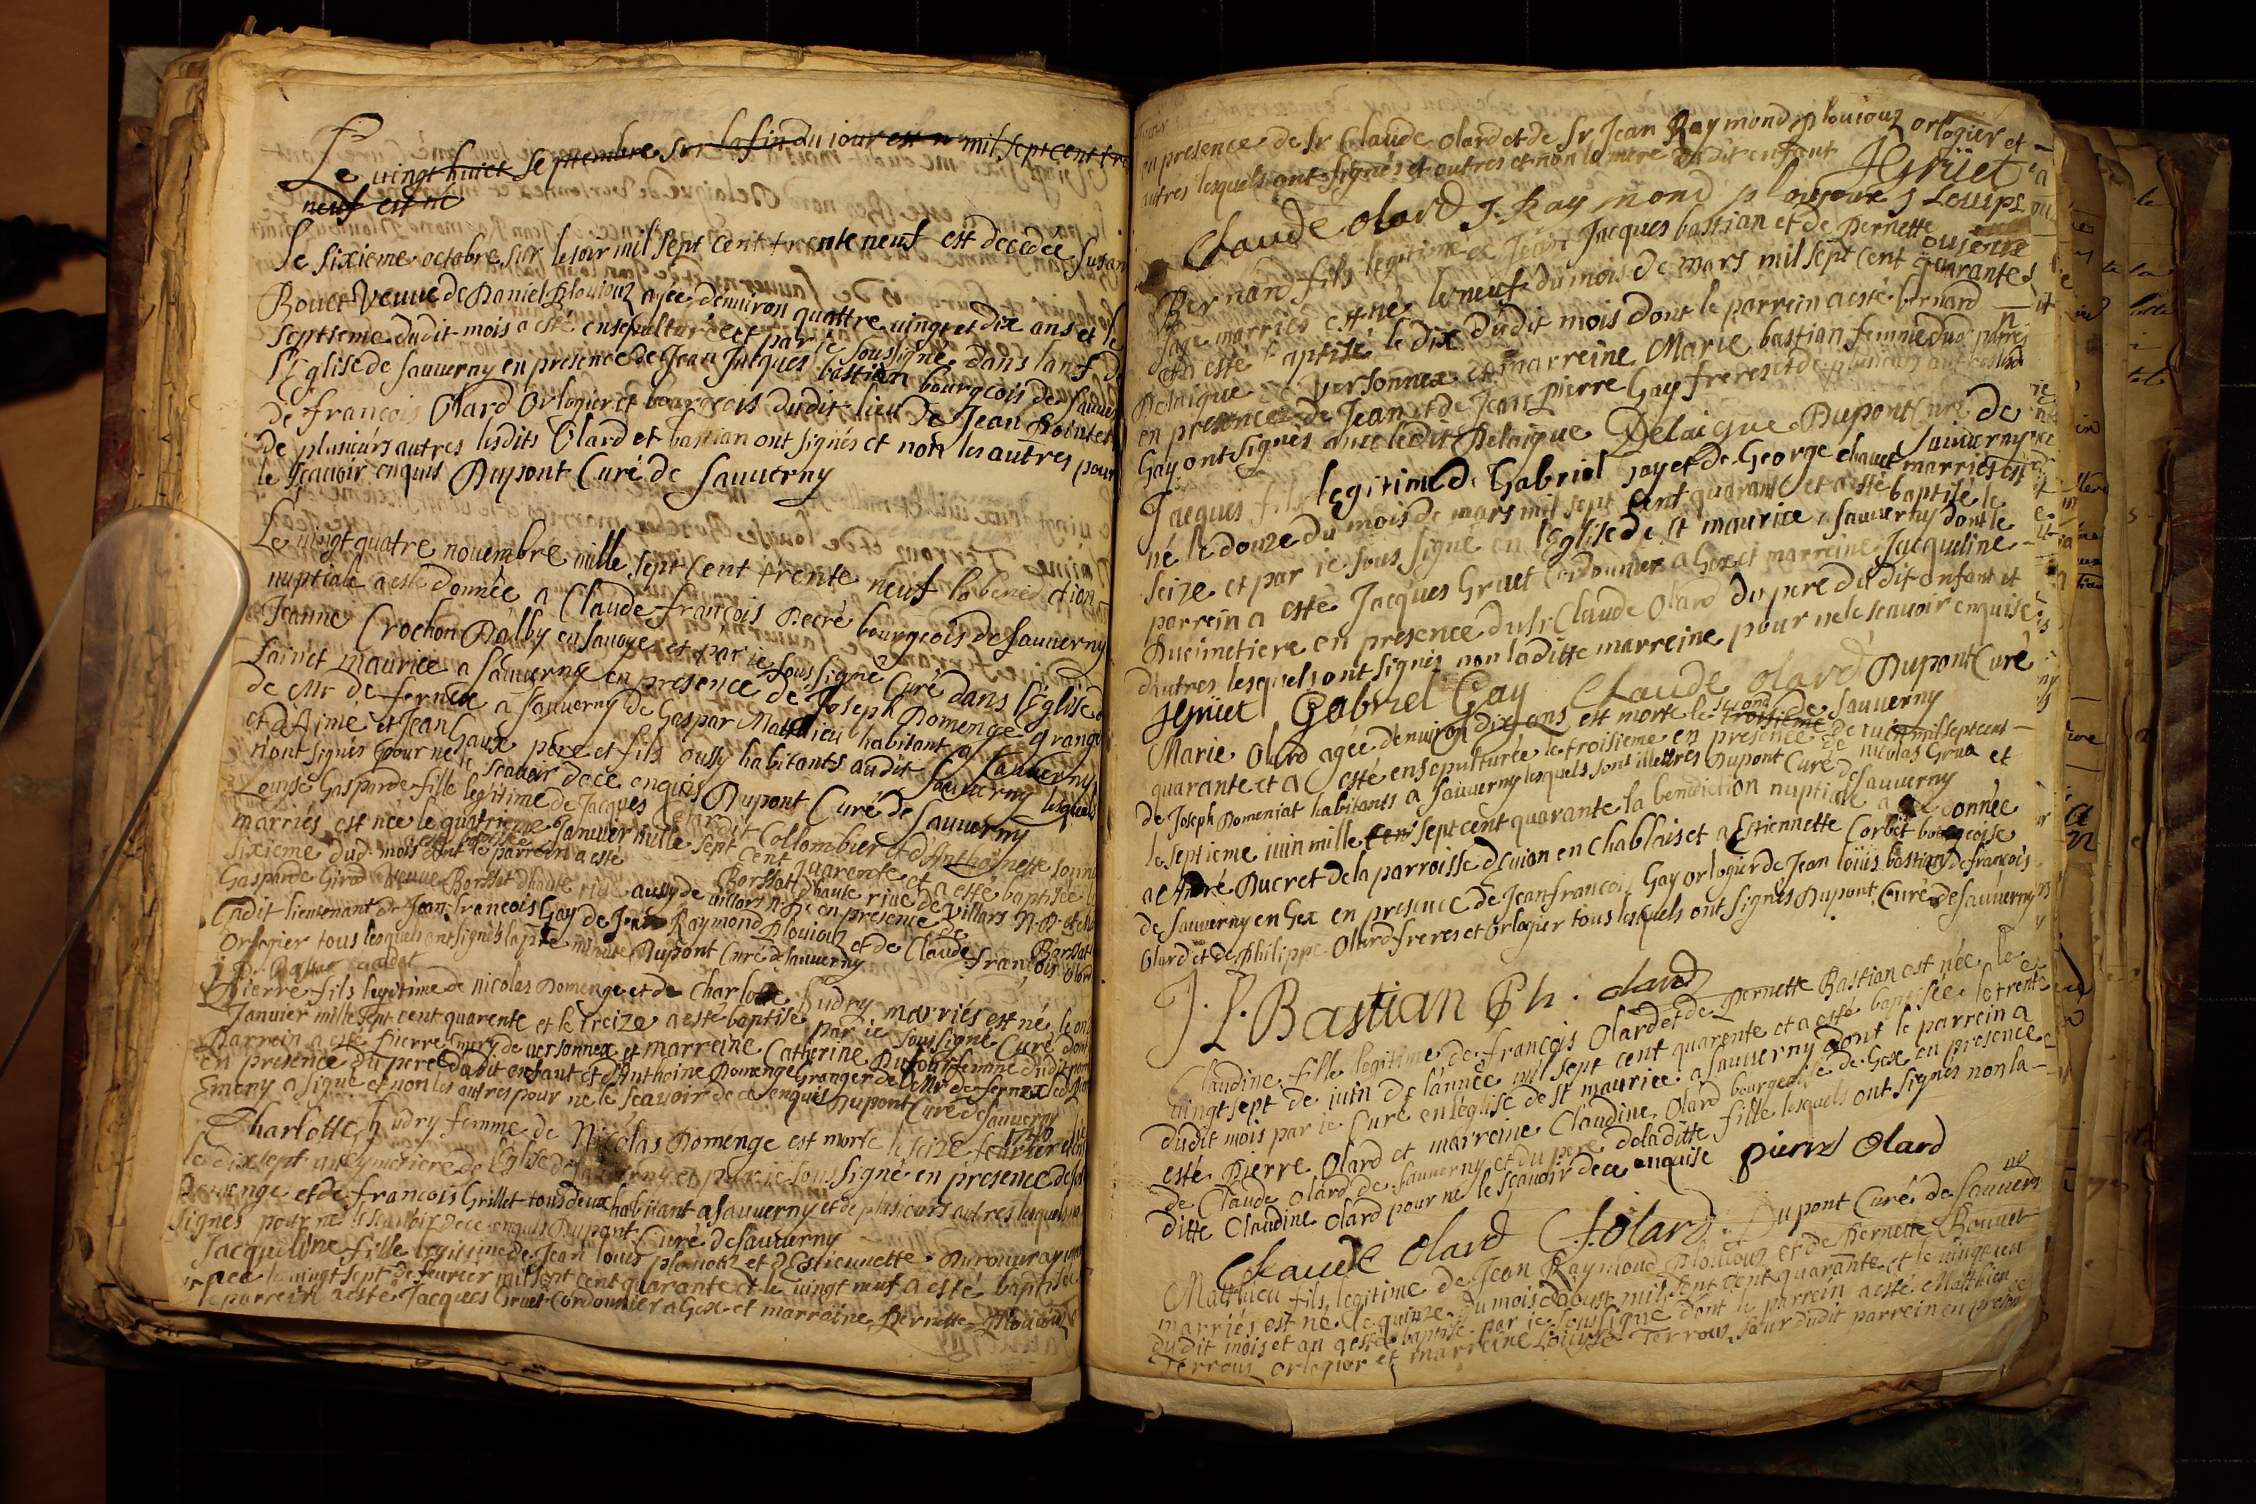 Le vingt huict Septtembre sur la fin du iour est n mil sept cent tre
neuf est né
Le sixieme octobre sur le soir mil sept cent trente neuf est decedée Susan
Bouet Veuve de Daniel Ploujoux agée d'environ quattre vingt et dix ans et le
septieme dudit mois a esté ensepulturée et par ie soussigné dans la nef de
l'Eglise de Sauverny en presence de Jean Jacques bastian bourgeois de Sauver
de françois Olard Orlogier et bourgeois dudit lieu de Jean Pointet
de plusieurs autres lesdits Olard et bastian ont signés et non les autres pour
le scavoir enquis Dupont Curé de Sauverny
Le vingt quatre novembre mille sept Cent trente neuf la benediction
nuptiale a esté donnée a Claude françois Decré bourgeois de Sauverny
Jeanne Crochon Dalby en Savoye et par ie Soussigné Curé dans l'Eglise d
Sainct maurice a Sauverny en presence de Joseph Domenge grange
de Mr de fernex a Sauverny de Gaspar Mathieu habitant a Sauverny
et d'Aimé et Jean Gaux père et fils aussy habitants audit Sauverny lesquels
n'ont signés pour ne le scavoir dece enquis Dupont Curé de Sauverny
Louise Gasparde fille legitime de Jacques Collombier et d'Anthoinette
marriés est née le quatrieme Janvier mille sept cent quarente et a esté baptisée
sixieme dud. mois dont le parrein a esté
Gasparde Girod veuve Borssat d'haute rive aussy de villars en presence de
Ladit lieutenant de Jean francois Gay de Jean Raymond Ploujoux et de Claude francois Olard
Orlogier tous lesquels ont signés la pnte minute Dupont Curé de Sauverny
Pierre fils legitime de nicolas Domenge et de Charlotte hudry marriés est né le on
Janvier mille sept cent quarente et le treize a esté baptisé par ie soussigné Curé dont
Parrein a esté pierre Emery de versonnex et marreine Catherine Dufour femme dudit
en presence du pere dudit enfant et d'Anthoine Domenge Granger de Mr de fernex
Emery a signé et non les autres pour ne le scavoir de ce enquis Dupont Curé de Sauverny
1740
Charlotte hudry femme de Nicolas Domenge est morte le seize fevrier
le dix sept au Cymetiere de l'Eglise de Sauverny et par ie soussigné en presence de
Domenge et de francois Grillet tous deux habitant a Sauverny et de plusieurs autres lesquels
signés pour ne le scavoir dece enquis Dupont Curé de Sauverny
Jacqueline fille legitime de Jean louis ploujoux et d'Estiennette
née le vingt sept de fevrier mil sept cent quarante et le vingt neuf a esté baptisée
le parrein a esté Jacques Gruet Cordonnier a Gex et marraine Pernette Ploujoux
en presence de Sr Claude Olard et de Sr Jean Raymond ploujoux orlogier et
autres lesquels ont signés et autres et non la mere dudit enfant JGruet
Claude olard J. Raymond ploujoux
Bernard fils legitime de Jean Jacques bastian et de Pernette
Sage marriés est né le neuf du mois de mars mil sept cent quarante
et a esté baptisé le dix dudit mois dont le parrein a esté bernard
Delaique de versonnex et marreine Marie bastian femme dud.
en presence de Jean et de Jean pierre Gay freres et de plusieurs autres
Gay ont signés avec ledit Delaique Delaicque Dupont Curé de
Sauverny
Jacques fils legitime de Gabriel gay et de George chavet marriés est
né le douze du mois de mars mil sept cent quarante et a esté baptisé le
seize et par ie sous signé en l'Eglise de St maurice a Sauverny dont le
parrein a esté Jacques Gruet Cordonnier a Gex et marreine Jacqueline
Ducimetiere en presence du Sr Claude Olard du pere dudit enfant et
d'autres lesquels ont signés non laditte marreine pour ne le scavoir enquise
JGruet Gabriel Gay Claude olard Dupont Curé
de Sauverny
Marie Olard agée d'environ dix ans est morte le second troisieme de iuin mil sept cent
quarante et a esté ensepulturée le troisieme en presence de nicolas Grua et
de Joseph Domeniat habitants a Sauverny lesquels sont illettrés Dupont Curé de Sauverny
le septieme iuin mille cent sept cent quarante la benediction nuptiale a esté donnée
a André Ducret de la parroisse d'Evian en Chablais et a Estiennette Corbet bourgeoise
de Sauverny en Gex en presence de Jean francois Gay orlogier de Jean loüis bastian de françois
Olard et de Philippe Olard freres et Orlogier tous lesquels ont signés Dupont Curé de Sauverny
J. L. Bastian Ph. olard
Claudine fille legitime de françois Olard et de Pernette Bastian est née le
vingt sept de iuin de l'année mil sept cent quarente et a esté baptisée le trente
dudit mois par ie Curé en l'église de St maurice a Sauverny dont le parrein a
esté Pierre Olard et marreine Claudine Olard bourgeoise de Gex en presence
de Claude Olard de Sauverny et du pere de laditte fille lesquels ont signés non la
ditte Claudine Olard pour ne le scavoir dece enquise pierre olard
Claude olard F. olard. Dupont Curé de Sauverny
Matthieu fils legitime de Jean Raymond Ploujoux et de Pernette Bouvet
marriés est né le quinze du mois d'aoust mil sept cent quarante et le vingt un
dudit mois et an a esté baptisé par ie soussigné dont le parrein a esté Matthieu
Terroux orlogier et marreine Louyse Terroux sœur dudit parrein en presence